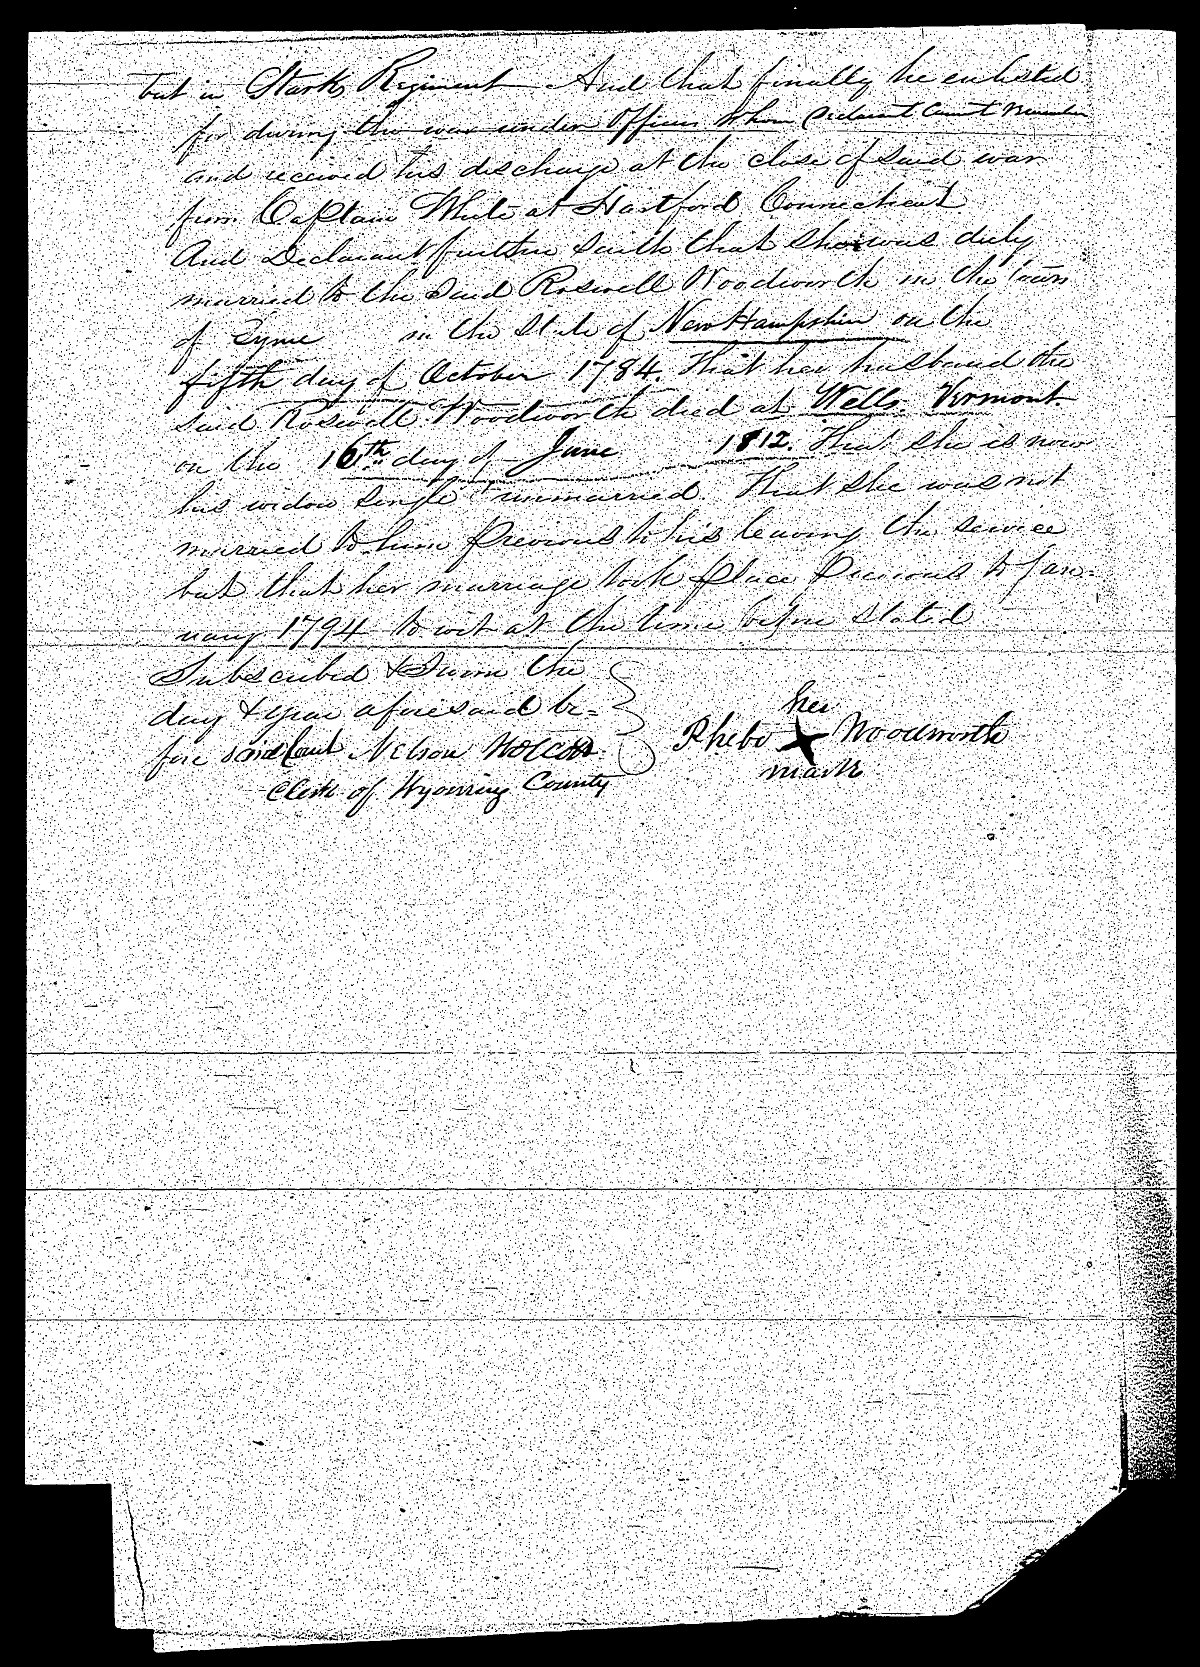 but in Starks Regiment And that finally he enlisted
for during the war under Officers whom declarant cannot remember
and received his discharge at the close of said war
from Captain White at Hartford Connecticut
And Declarant further saith that she was duly
married to the said Roswell Woodworth in the town
of Lyme in the State of New Hampshire on the
fifth day of October 1784. That her husband the
said Roswell Woodworth died at Wells Vermont.
on the 16th day of June 1812. That she is now
his widow single & unmarried. That she was not
married to him previous to his leaving the service
but that her marriage took place previous to Jan=
uary 1794 to wit at the time before stated
Subscribed & Sworn the
day & year aforesaid be=
fore said Court Nelson Wolcott
Clerk of Wyoming County
her
Phebe X Woodworth
mark